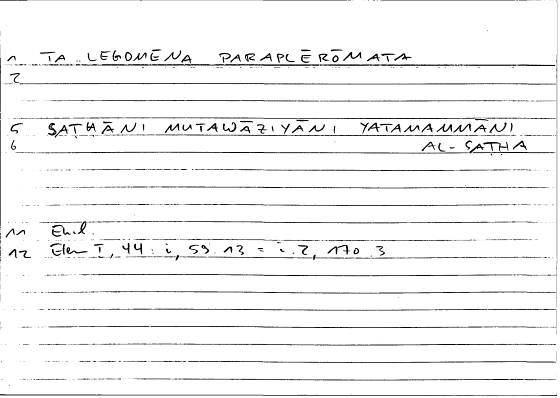 1 TA LEGOMENA PARAPLĒRŌMATA
2
5 SATḤĀNI MUTAWĀZIYĀNI YATAMAMMĀNI
6 AL-SATḤA
11 Eucl.
12 Elem I, 44 : i, 59 13 = i.2, 170 3